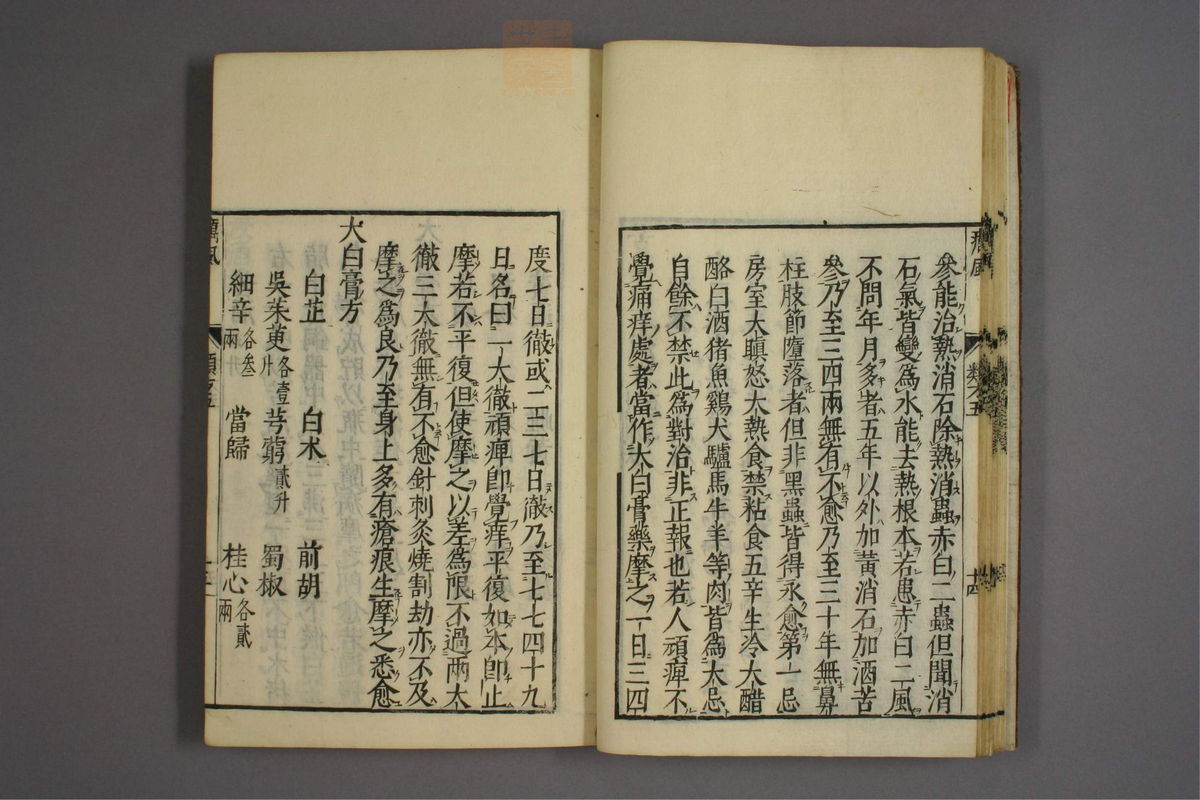 參能治熱消石除熱消蟲赤白二蟲但聞消
石氣皆變爲水能去熱根本若患赤白二風
不問年月多者五年以外加黃消石加酒苦
參乃至三四兩無有不愈乃至三十年無鼻
柱肢節墮落者但非黑蟲皆得永愈第一忌
房室大瞋怒大熱食禁粘食五辛生冷大醋
酪白酒猪魚鷄犬驢馬牛羊等肉皆爲大忌
自餘不禁此爲對治非正報也若人頑痺不
覺痛痒處者當作大白膏藥摩之一日三四
度七日徹或二三七日徹乃至七七四十九
日名曰一大徹頑痺即覺痒平復如本即止
摩若不平復但使摩之以差爲限不過兩大
徹三大徹無有不愈針刺灸燒割劫亦不及
摩之爲良乃至身上多有瘡痕生摩之悉愈
大白膏方
白芷 白朮 前胡
吳茱萸各壹升 芎藭貳升 蜀椒
細辛各叁兩 當歸 桂心各貳兩